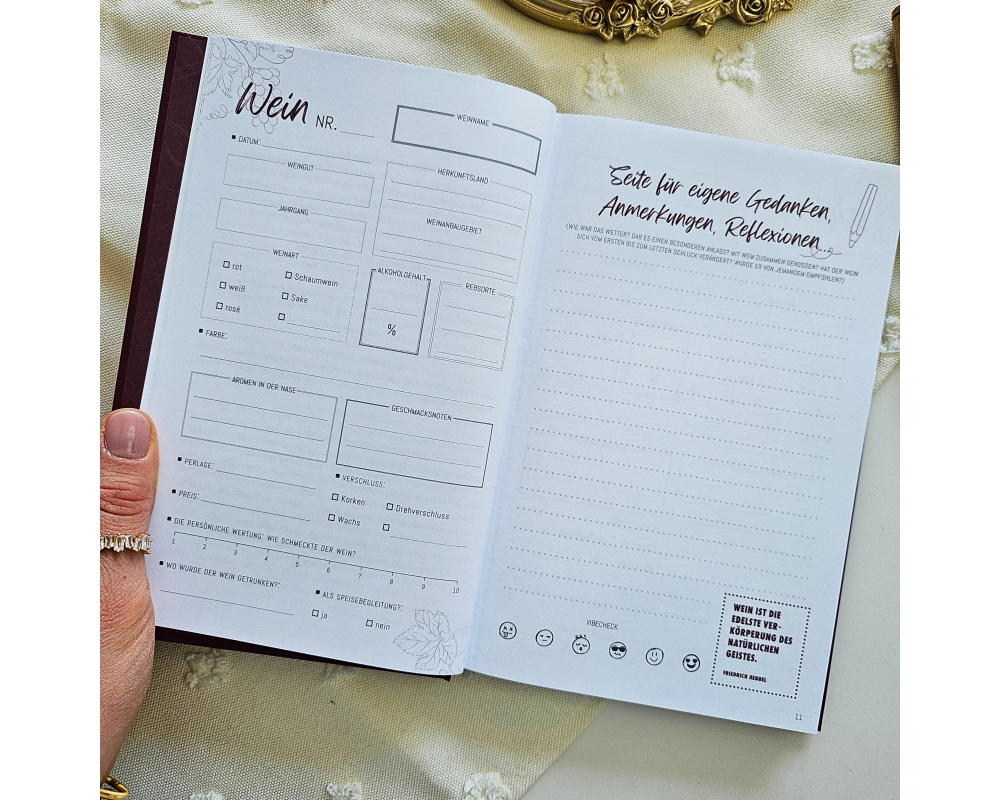 Wein NR.
WEINNAME
DATUM:
WEINGUT
HERKUNFTSLAND
JAHRGANG
WEINANBAUGEBIET
WEINART
rot
Schaumwein
weiß
Sake
rosé
ALKOHOLGEHALT
%
REBSORTE
FARBE:
AROMEN IN DER NASE
GESCHMACKSNOTEN
PERLAGE:
VERSCHLUSS:
Korken
Drehverschluss
Wachs
PREIS:
DIE PERSÖNLICHE WERTUNG: WIE SCHMECKTE DER WEIN?
1 2 3 4 5 6 7 8 9 10
WO WURDE DER WEIN GETRUNKEN?:
ALS SPEISEBEGLEITUNG?:
ja
nein
Seite für eigene Gedanken,
Anmerkungen, Reflexionen...
(WIE WAR DAS WETTER? GAB ES EINEN BESONDEREN ANLASS? MIT WEM ZUSAMMEN GENOSSEN? HAT DER WEIN
SICH VOM ERSTEN BIS ZUM LETZTEN SCHLUCK VERÄNDERT? WURDE ER VON JEMANDEM EMPFOHLEN?)
VIBECHECK
WEIN IST DIE
EDELSTE VER-
KÖRPERUNG DES
NATÜRLICHEN
GEISTES.
FRIEDRICH HEBBEL
11